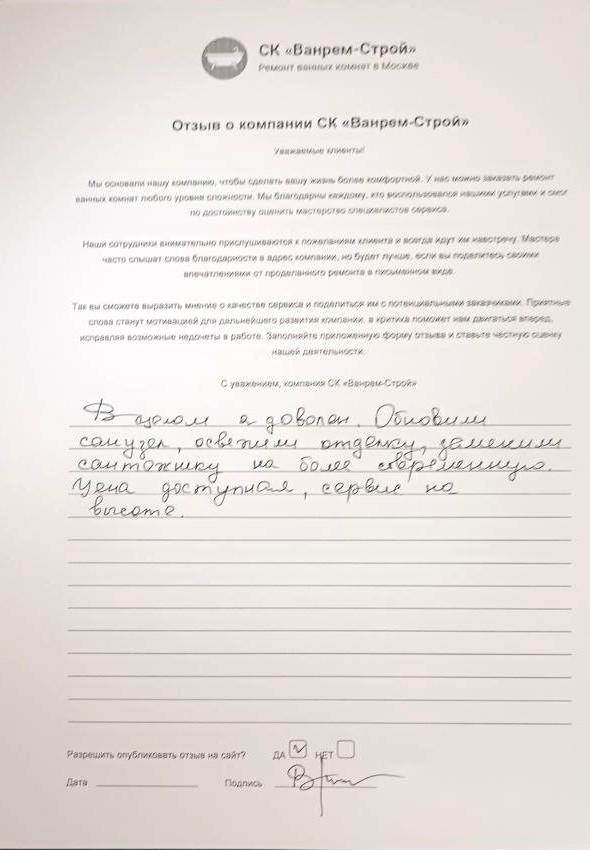 СК «Ванрем-Строй»
Ремонт ванных комнат в Москве
Отзыв о компании СК «Ванрем-Строй»
Уважаемые клиенты!
Мы основали нашу компанию, чтобы сделать вашу жизнь более комфортной. У нас можно заказать ремонт
ванных комнат любого уровня сложности. Мы благодарны каждому, кто воспользовался нашими услугами и смог
по достоинству оценить мастерство специалистов сервиса.
Наши сотрудники внимательно прислушиваются к пожеланиям клиента и всегда идут им навстречу. Мастера
часто слышат слова благодарности в адрес компании, но будет лучше, если вы поделитесь своими
впечатлениями от проделанного ремонта в письменном виде.
Так вы сможете выразить мнение о качестве сервиса и поделиться им с потенциальными заказчиками. Приятные
слова станут мотивацией для дальнейшего развития компании, а критика поможет нам двигаться вперед,
исправляя возможные недочеты в работе. Заполняйте приложенную форму отзыва и ставьте честную оценку
нашей деятельности.
С уважением, компания СК «Ванрем-Строй»
В целом я доволен. Обновили
санузел, освежили отделку, заменили
сантехнику на более современную.
Цена доступная, сервис на
высоте.
Разрешить опубликовать отзыв на сайт? ДА НЕТ
Дата Подпись